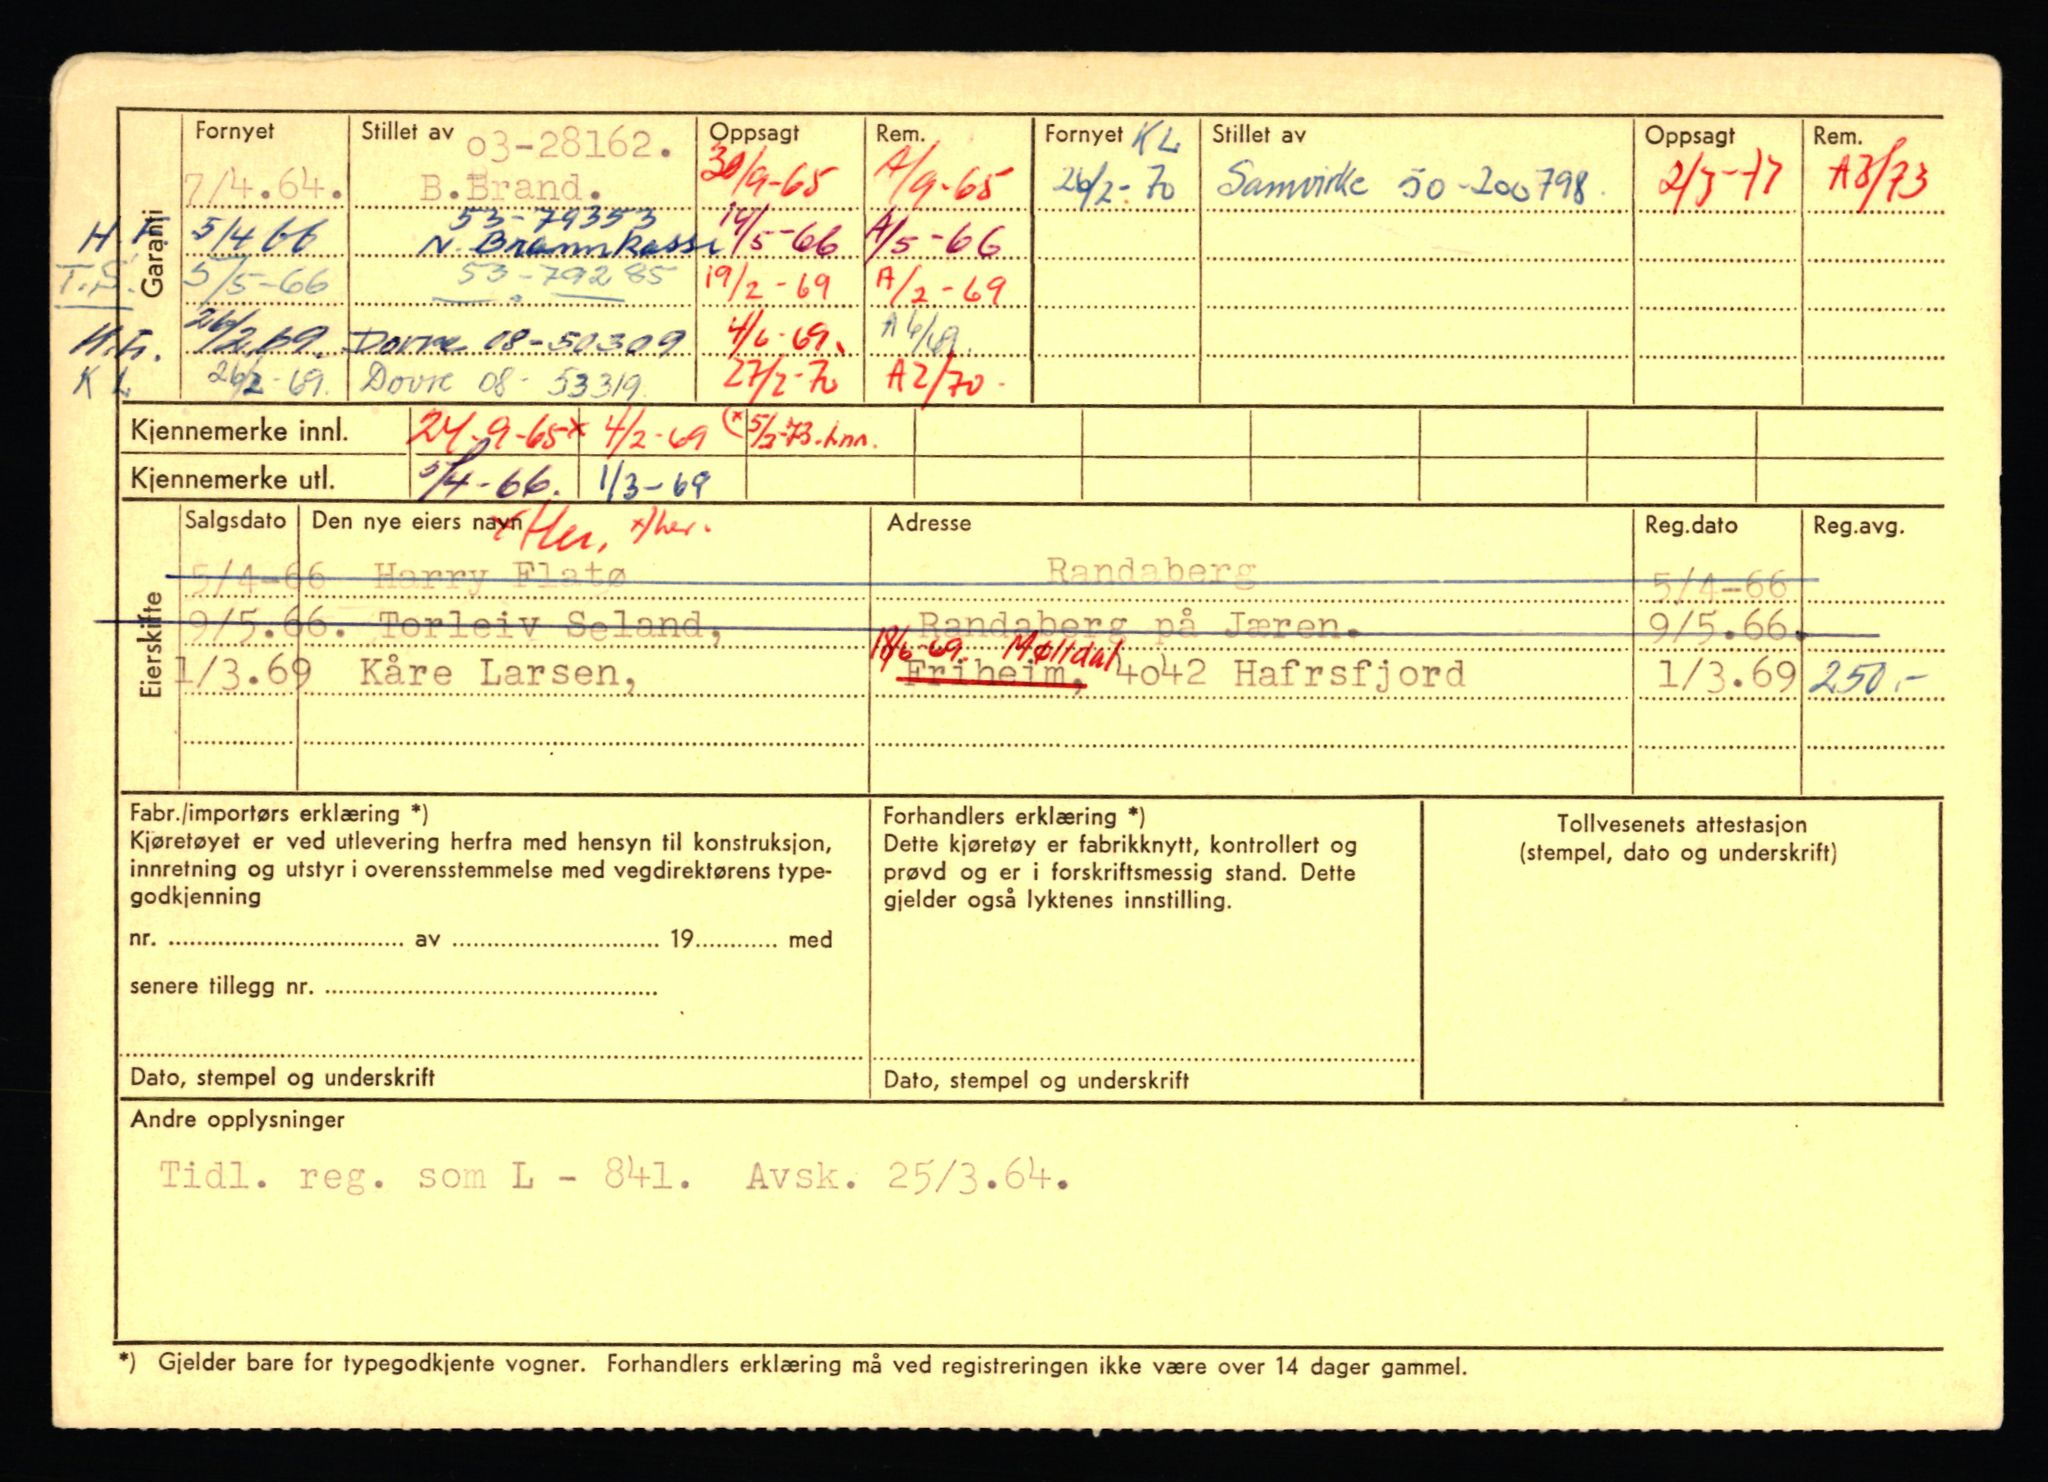 Garanti
Fornyet Stillet av Oppsagt Rem. Fornyet KL Stillet av Oppsagt Rem.
o3-28162.
7/4.64. B.Brand. 30/9-65 A/9-65 26/2-70 Samvirke 50-200798. A3/73
53-79353
H F 5/4 66 N. Brannkasse 14/5-66 A/5-66
T.S. 5/5-66 53-79285 19/2-69 A/2-69
H.F. 26/2.69. Dovre 08-50309 4/6-69. A 6/69.
KL 26/2-69. Dovre 08-53319. 27/2-70 A2/70.
Kjennemerke innl. 24.9-65x 4/2-69 (x 5/3-73. Inn.
Kjennemerke utl. 5/4-66. 1/3-69
Eierskifte
Salgsdato Den nye eiers navn Adresse Reg.dato Reg.avg.
x) her.
5/4-66 Harry Flatø Randaberg 5/4-66
9/5.66. Torleiv Seland, Randaberg på Jæren. 9/5.66.
18/6-69. Møltdal
1/3.69 Kåre Larsen, Friheim, 4o42 Hafrsfjord 1/3.69 250.-
Fabr./importørs erklæring *)
Kjøretøyet er ved utlevering herfra med hensyn til konstruksjon,
innretning og utstyr i overensstemmelse med vegdirektørens type-
godkjenning
nr. av 19 med
senere tillegg nr.
Dato, stempel og underskrift
Forhandlers erklæring *)
Dette kjøretøy er fabrikknytt, kontrollert og
prøvd og er i forskriftsmessig stand. Dette
gjelder også lyktenes innstilling.
Dato, stempel og underskrift
Tollvesenets attestasjon
(stempel, dato og underskrift)
Andre opplysninger
Tidl. reg. som L - 841. Avsk. 25/3.64.
*) Gjelder bare for typegodkjente vogner. Forhandlers erklæring må ved registreringen ikke være over 14 dager gammel.